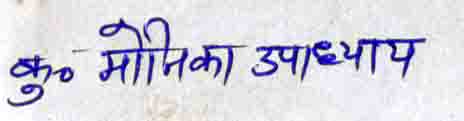 कु० मोनिका उपाध्याय